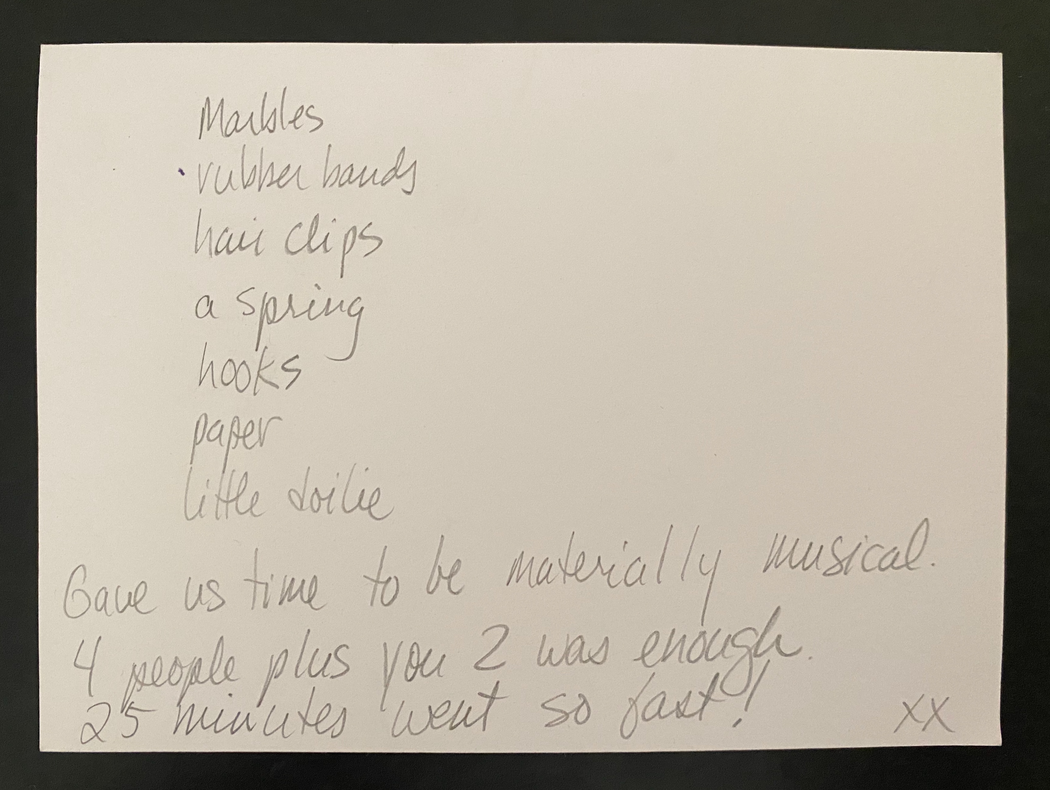 Marbles
rubber bands
hair clips
a spring
hooks
paper
little doilie
Gave us time to be materially musical.
4 people plus you 2 was enough.
25 minutes went so fast! XX